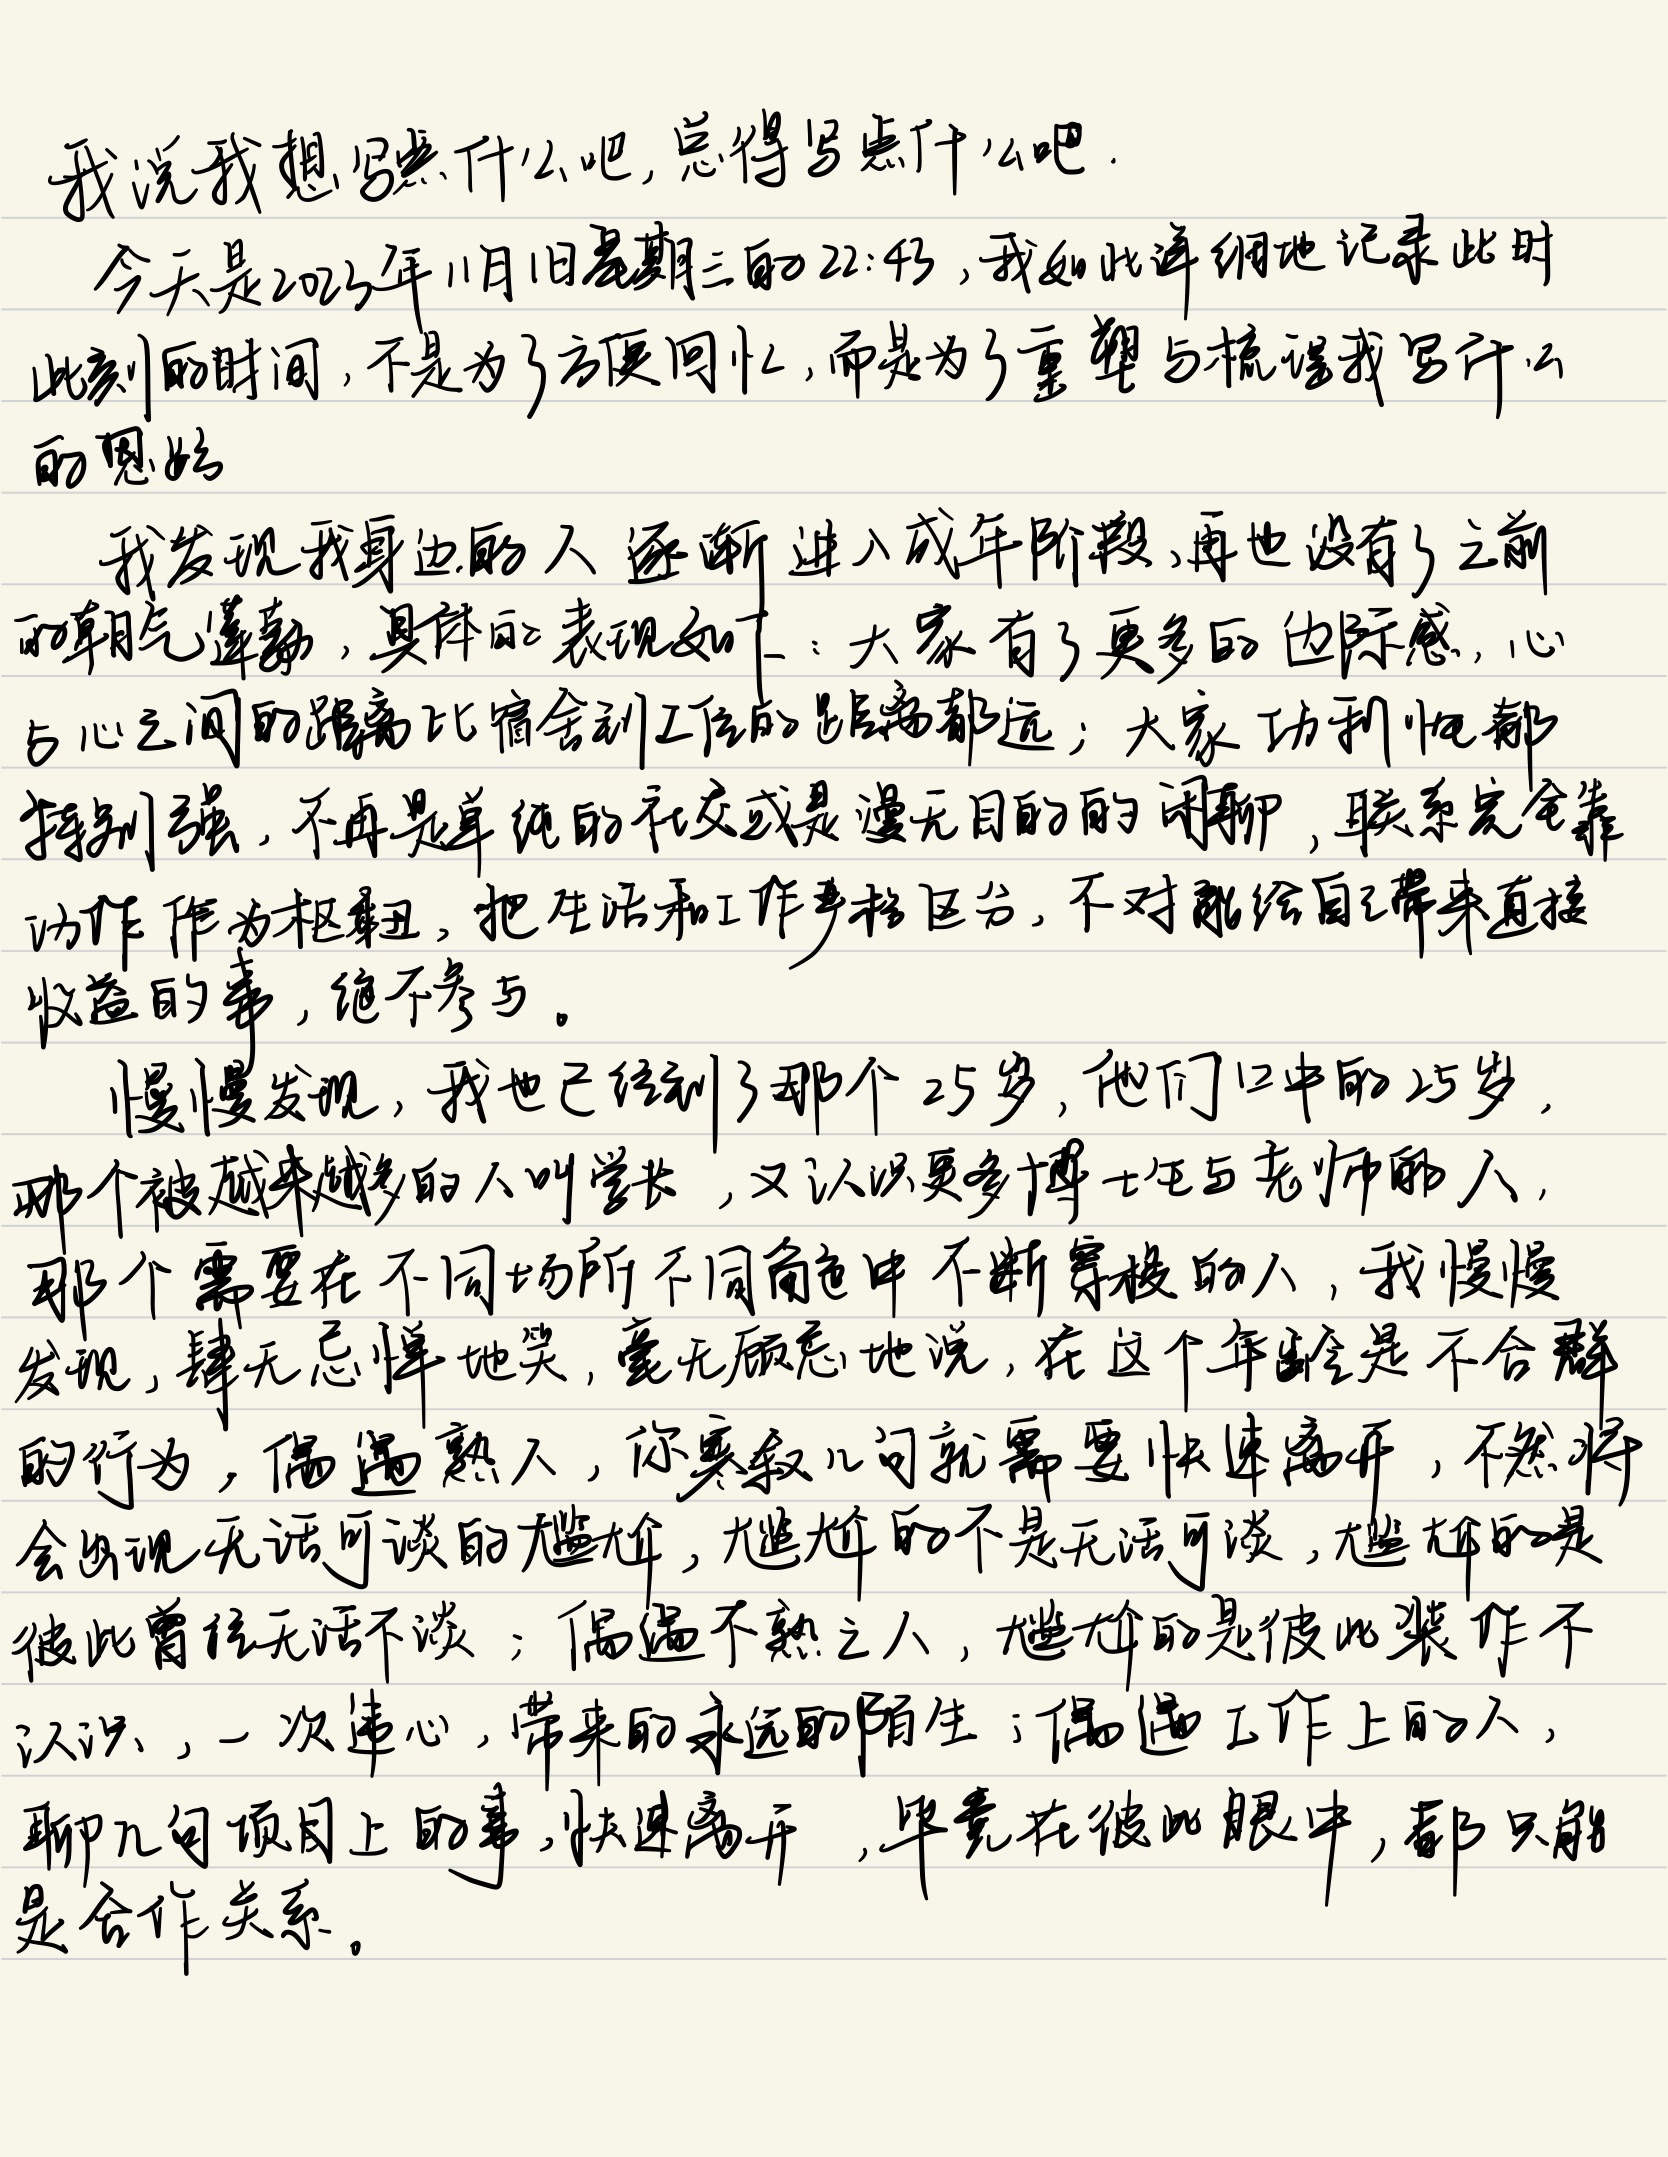 我说我想写点什么吧,总得写点什么吧.
今天是2023年11月1日星期三的22:43,我如此详细地记录此时
此刻的时间,不是为了方便回忆,而是为了重塑与梳理我写什么
的思始
我发现我身边的人逐渐进入成年阶段,再也没有了之前
的朝气蓬勃,具体的表现如下:大家有了更多的边际感,心
与心之间的距离比宿舍到工位的距离都远;大家功利性都
特别强,不再是单纯的社交或是漫无目的的闲聊,联系完全靠
功作作为枢纽,把生活和工作严格区分,不对能给自己带来直接
收益的事,绝不参与。
慢慢发现,我也已经到了那个25岁,他们口中的25岁,
那个被越来越多的人叫学长,又认识更多博士生与老师的人,
那个需要在不同场所不同角色中不断穿梭的人,我慢慢
发现,肆无忌惮地笑,毫无顾忌地说,在这个年龄是不合群
的行为,偶遇熟人,你寒叙几句就需要快速离开,不然将
会出现无话可谈的尴尬,尴尬的不是无话可谈,尴尬的是
彼此曾经无话不谈;偶遇不熟之人,尴尬的是彼此装作不
认识,一次违心,带来的永远的陌生;偶遇工作上的人,
聊几句项目上的事,快速离开,毕竟在彼此眼中,都只能
是合作关系。